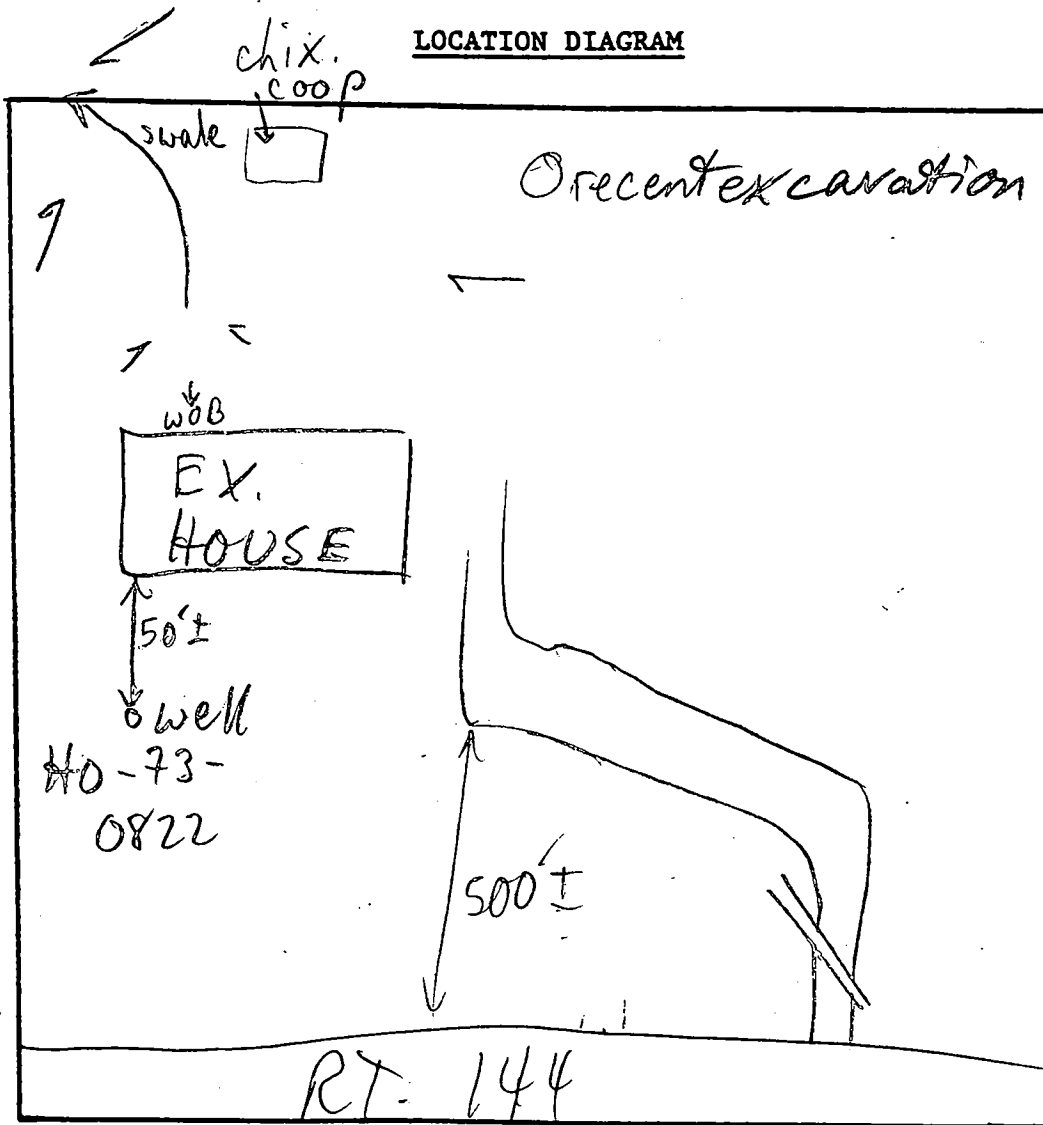 LOCATION DIAGRAM
chix.
coop
swale
O recent excavation
WOB
EX.
HOUSE
50'±
well
HO-73-
0822
500'±
RT. 144